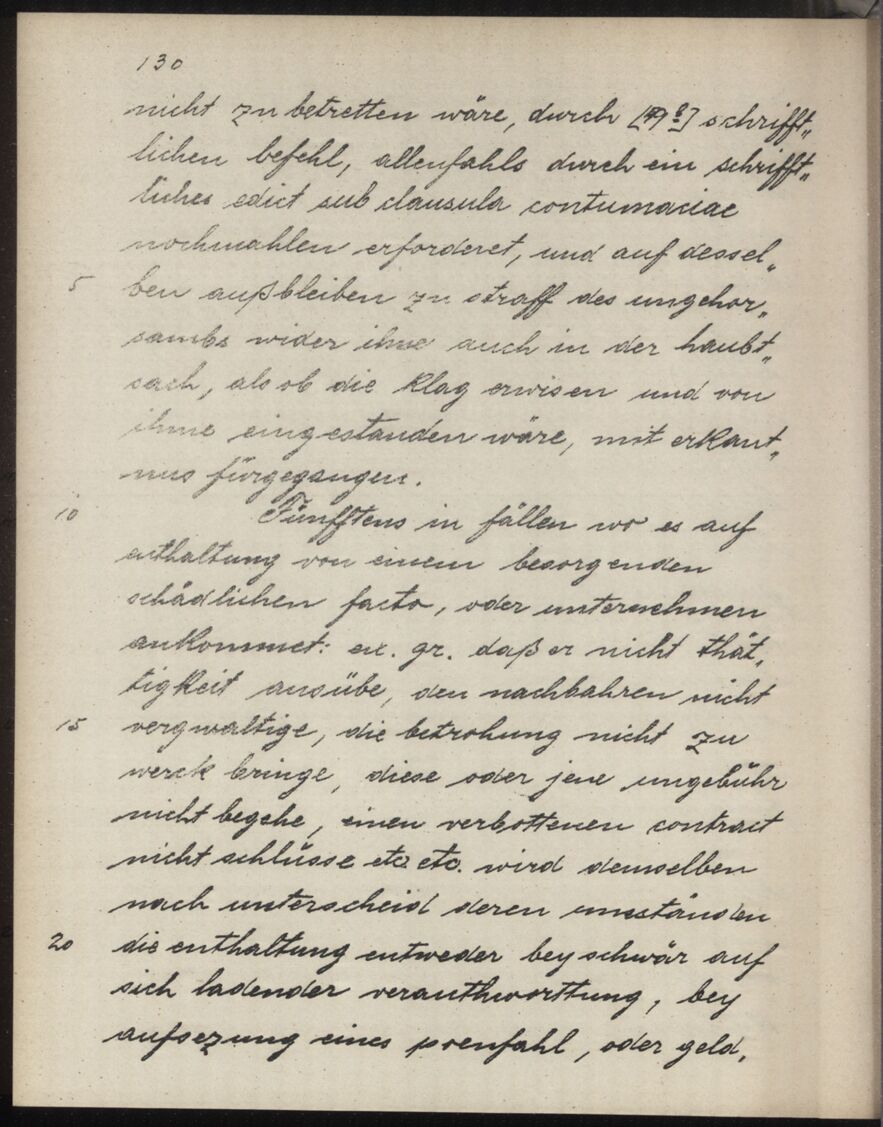 130
nicht zu betretten wäre, durch [79 8] schrifft„
lichen befehl, allenfahls durch ein schrifft„
liches edict sub clausula contumaciae
nochmahlen erforderet, und auf dessel„
5 ben außbleiben zu straff des ungehor„
sambs wider ihne auch in der haubt„
sach, als ob die klag erwisen und von
ihme eingestanden wäre, mit erkant„
nus fürgegangen.
10 Fünfftens in fällen wo es auf
enthaltung von einem besorgenden
schädlichen facto, oder unternehmen
ankommet: ex. gr. daß er nicht thät„
tigkeit ausübe, den nachbahren nicht
15 vergwaltige, die betrohung nicht zu
werck bringe, diese oder jene ungebühr
nicht begehe, einen verbottenen contract
nicht schlüsse etc etc. wird demselben
nach unterscheid deren umständen
20 die enthaltung entweder bey schwär auf
sich ladender veranthworttung, bey
aufsezung eines poenfahl, oder geld„